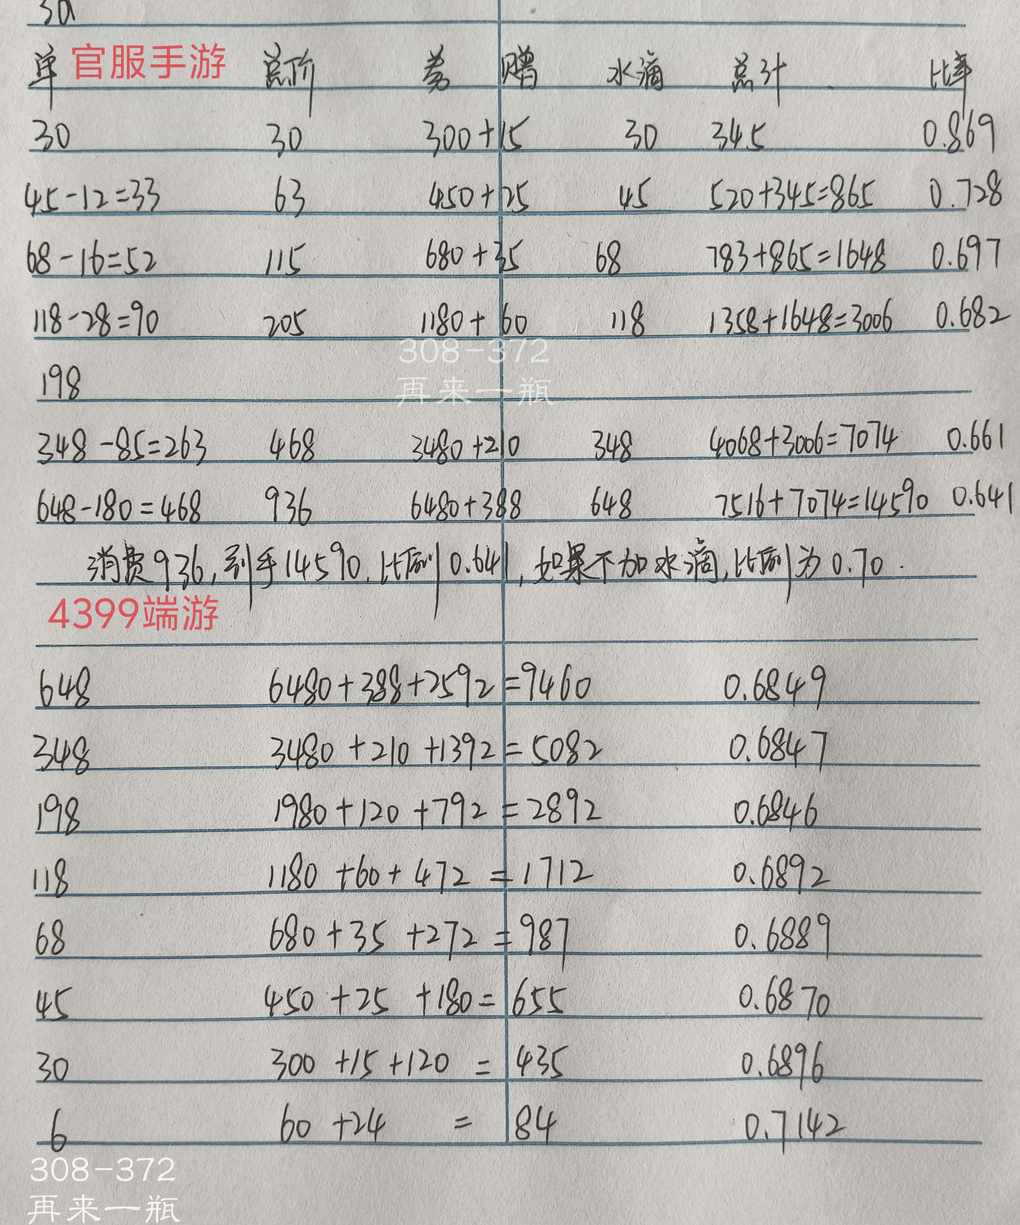 30
单 官服手游 总价 券 赠 水滴 总计 比率
30 30 300+15 30 345 0.869
45-12=33 63 450+25 45 520+345=865 0.728
68-16=52 115 680+35 68 783+865=1648 0.697
118-28=90 205 1180+60 118 1358+1648=3006 0.682
308-372
再来一瓶
198
348-85=263 468 3480+210 348 4068+3006=7074 0.661
648-180=468 936 6480+388 648 7516+7074=14590 0.641
消费936,到手14590,比例0.641,如果不加水滴,比例为0.70.
4399端游
648 6480+388+2592=9460 0.6849
348 3480+210+1392=5082 0.6847
198 1980+120+792=2892 0.6846
118 1180+60+472=1712 0.6892
68 680+35+272=987 0.6889
45 450+25+180=655 0.6870
30 300+15+120=435 0.6896
6 60+24=84 0.7142
308-372
再来一瓶